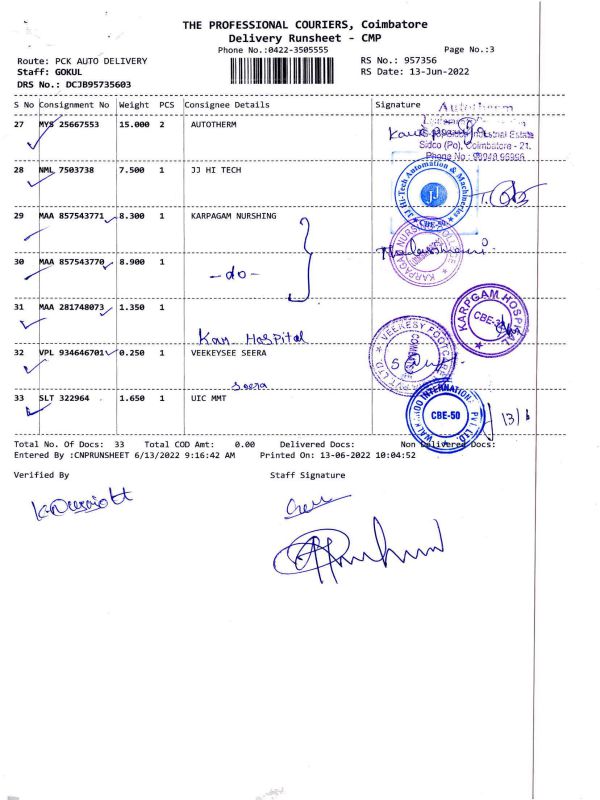 THE PROFESSIONAL COURIERS, Coimbatore
Delivery Runsheet - CMP
Phone No.:0422-3505555
Page No.:3
Route: PCK AUTO DELIVERY
RS No.: 957356
Staff: GOKUL
RS Date: 13-Jun-2022
DRS No.: DCJB95735603
S No Consignment No Weight PCS Consignee Details Signature
Autotherm
27 MYS 25667553 15.000 2 AUTOTHERM
Industrial Estate
Sidco (Po), Coimbatore - 21.
Phone No :
28 NML 7503738 7.500 1 JJ HI TECH
JJ Hi-Tech Automation & Machineries
JJ
CBE-50
29 MAA 857543771 8.300 1 KARPAGAM NURSHING
KARPAGAM NURSING COLLEGE
30 MAA 857543770 8.900 1
-do-
31 MAA 281748073 1.350 1
KARPGAM HOSPITAL
Kan. Hospital
VEEKESY FOOTCARE PVT. LTD.
32 VPL 934646701 0.250 1 VEEKEYSEE SEERA
Seera
33 SLT 322964 1.650 1 UIC MMT
INTERNATIONAL PVT. LTD.
CBE-50
13/6
Total No. Of Docs: 33 Total COD Amt: 0.00 Delivered Docs: Non Delivered Docs:
Entered By :CNPRUNSHEET 6/13/2022 9:16:42 AM Printed On: 13-06-2022 10:04:52
Verified By Staff Signature